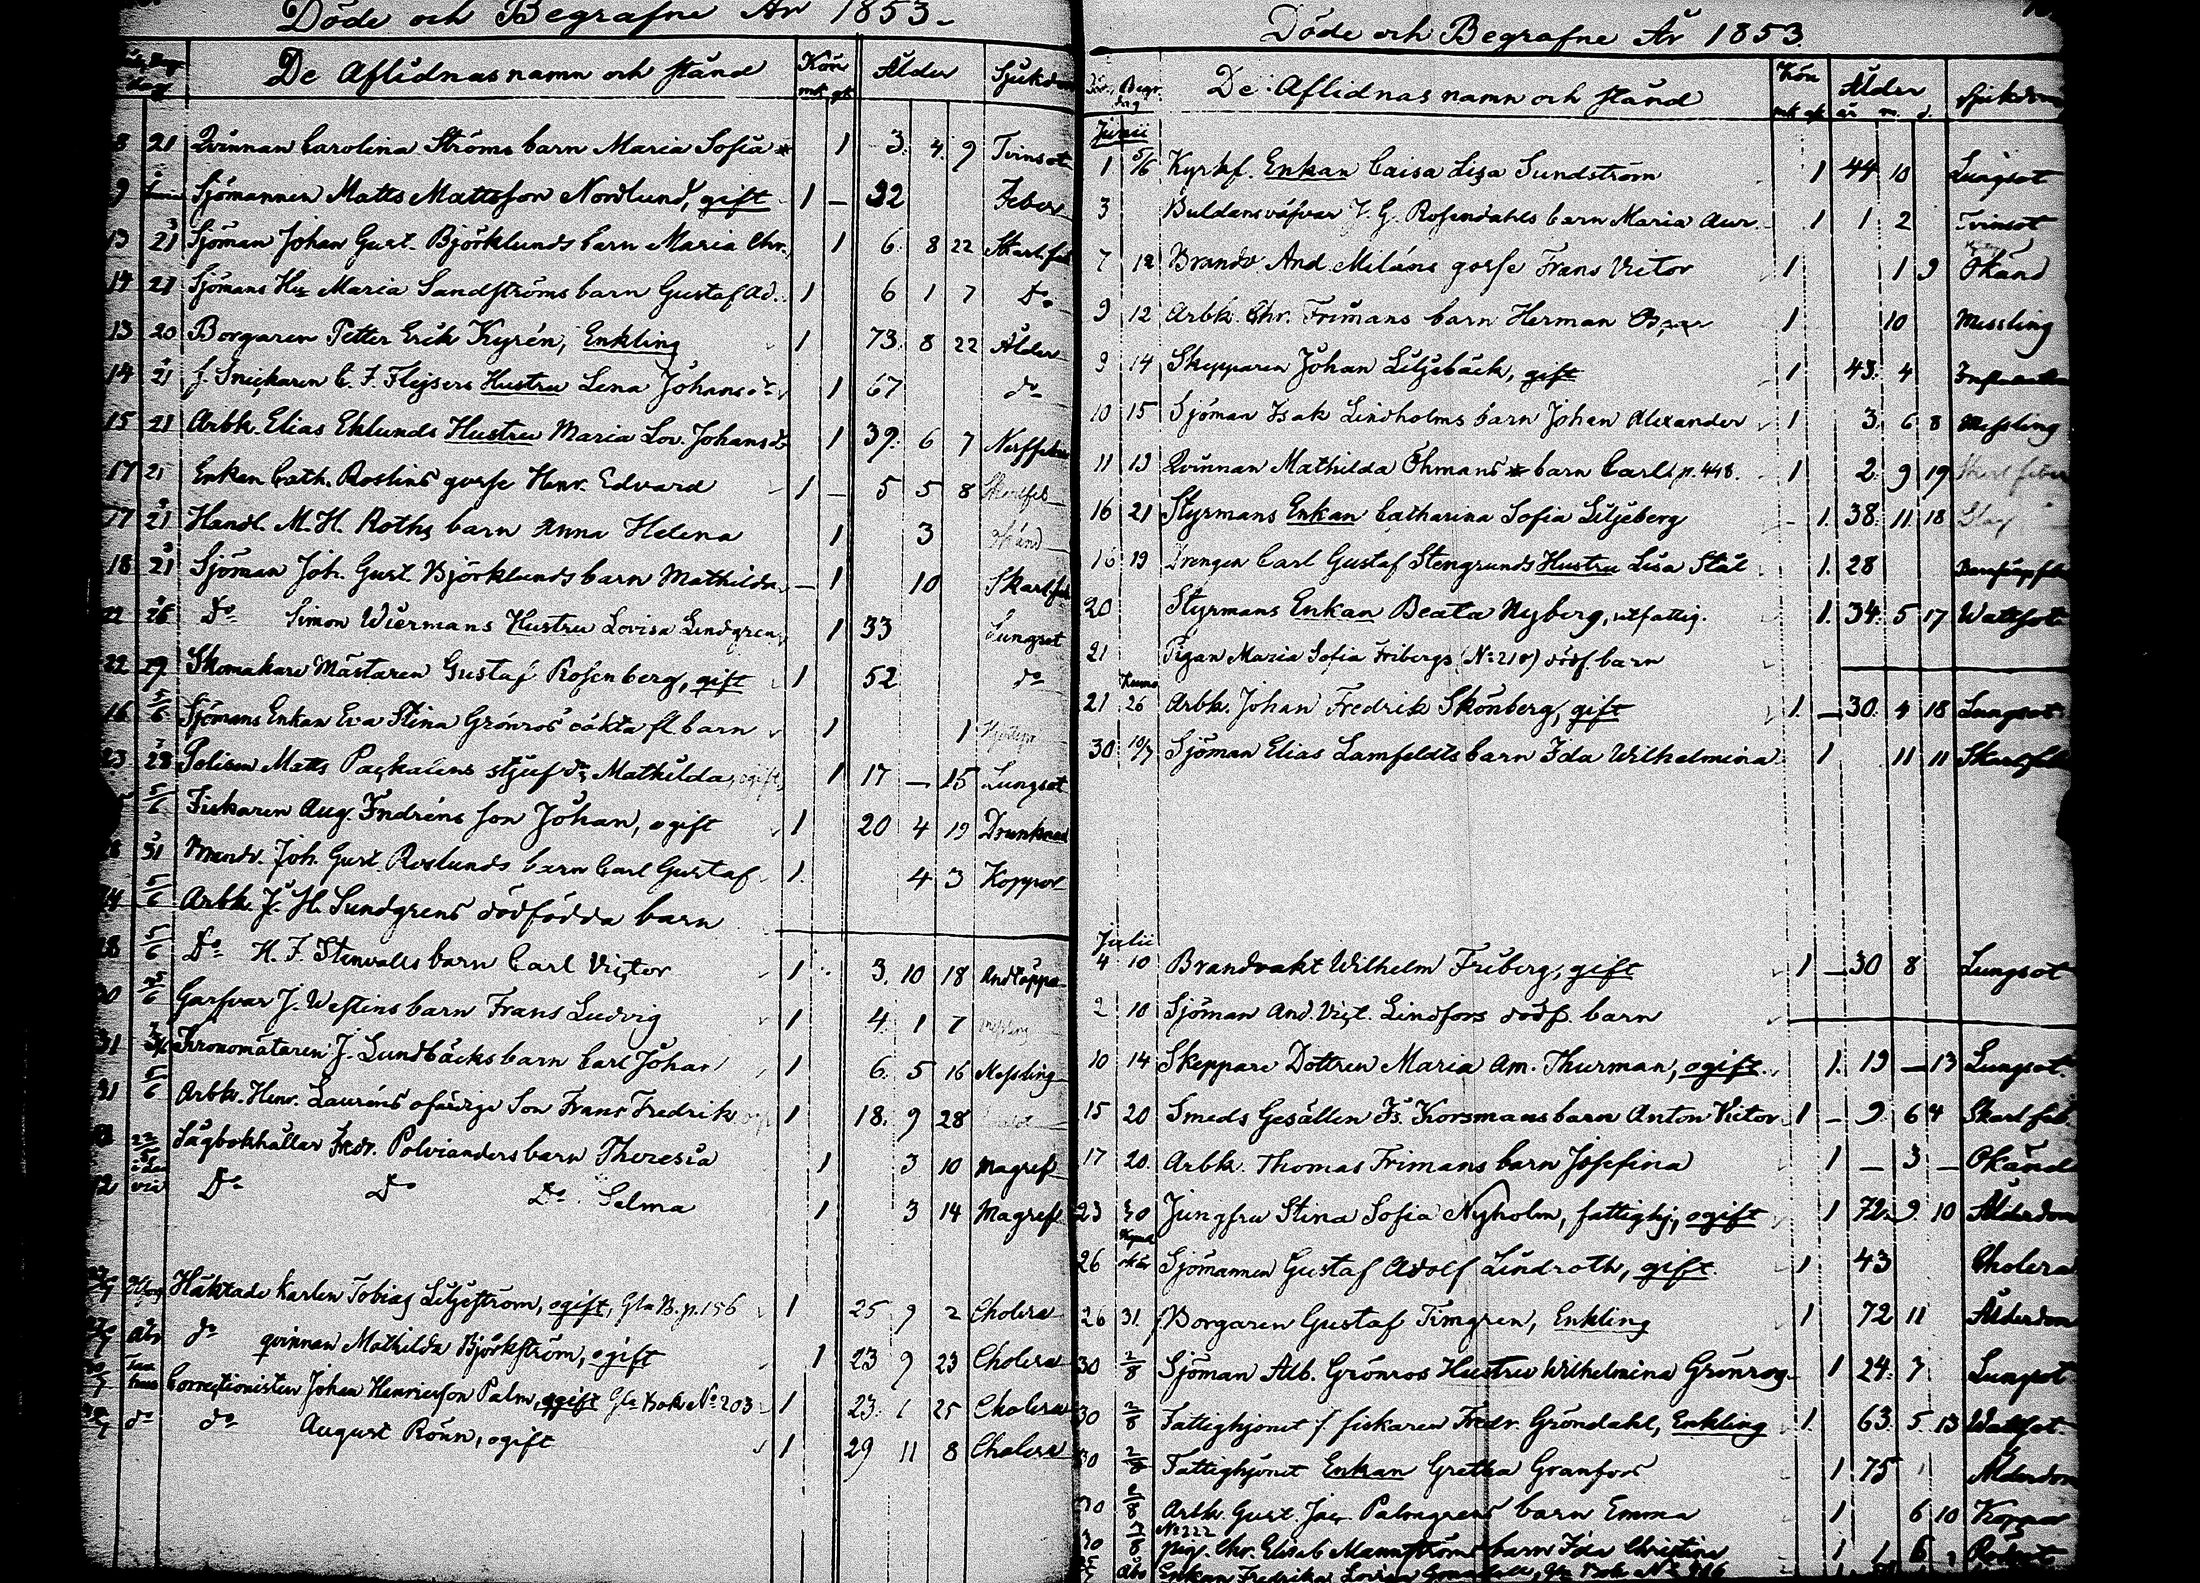 Döde och Begrafne År 1853.
De Aflidnas namn och stånd Kön Ålder Sjukdom
mk qk
8 21 Qvinnan Carolina Ströms barn Maria Sofia 1 3. 4. 9 Tvinsot
9 Sjömannen Matts Mattsson Nordlund, gift 1 – 32 Feber
13 21 Sjöman Johan Gust. Björklunds barn Maria Chr. 1 6. 8 22 Skarl.feb
14 21 Sjömans Maria Sandströms barn Gustaf Ad. 1 6 1 7 Do
13 20 Borgaren Petter Erik Kyrén, Enkling 1 73. 8 22 Ålder
14 21 f. Snickaren C. F. Flejsers Hustru Lena Johansdr 1 67 do
15 21 Arbk. Elias Eklunds Hustru Maria Lov. Johansdr 1 39. 6 7 Nerffeber
17 21 Enkan Cath. Roslins gosse Henr. Edvard 1 – 5 5 8 Skarlfeb
17 21 Handl. M. H. Roths barn Anna Helena 1 3 Okänd
18 21 Sjöman Joh. Gust. Björklunds barn Mathilda – 1 10 Skarl.feb
22 26 Do Simon Wiermans Hustru Lovisa Lindgren 1 33 Lungsot
22 29 Skomakare Mästaren Gustaf Rosenberg, gift 1 52 do
16 5/6 Sjömans Enkan Eva Stina Grönroos oäkta fl. barn 1 1
23 28 Polisen Matts Packalens stjufdr Mathilda, ogift 1 17 – 15 Lungsot
5/6 Fiskaren Aug. Indréns son Johan, ogift 1 20 4 19 Drunknad
28 31 Brandv. Joh. Gust. Roslunds barn Carl Gustaf 1. 4 3 Koppor
5/6 Arbk. J. H. Sundgrens dödfödda barn
28 5/6 Do H. F. Stenvalls barn Carl Victor 1 3. 10 18 Andtäppa
30 5/6 Garfvar J. Westins barn Frans Ludvig 1 4. 1 7 Messling
31 Kronomätaren J. Lundbäcks barn Carl Johan 1 6. 5 16 Messling
31 5/6 Arbk. Henr. Lauréns ofärdige Son Frans Fredrik 1 18. 9 28
Sågbokhållar Fredr. Polvianders barn Theresia 1 3 10 Magref
12 Do Do Do Selma 1 3 14 Magref
Häktade karlen Tobias Liljeström, ogift, Gla B. p. 156 1 25 9 2 Cholera
Åbo do qvinnan Mathilda Björkström, ogift 1 23 9 23 Cholera
Correctionisten Johan Henricsson Palm, ogift Gla Bok No 203 1 23. 1 25 Cholera
do do August Rönn, ogift 1 29 11 8 Cholera
Döde och Begrafne År 1853.
Död Begr. dag De Aflidnas namn och stånd Kön Ålder Sjukdom
mk qk år m. d.
Junii
1 5/6 Kyrkf. Enkan Caisa Lisa Sundström 1 44 10 Lungsot
3 Buldansväfvar J. G. Rosendahls barn Maria Aur. 1 1 2 Tvinsot
7 12 Brandv. And. Miléns gosse Frans Victor 1 1 9 Okänd
9 12 Arbk. Chr. Frimans barn Herman 1 10 Messling
9 14 Skepparen Johan Liljebäck, gift 1 43. 4
10 15 Sjöman Isak Lindholms barn Johan Alexander 1 3. 6 8 Messling
11 19 Qvinnan Mathilda Öhmans barn Carl p. 448. 1 2. 9 19 Skarl.feber
16 21 Styrmans Enkan Catharina Sofia Liljeberg – 1. 38. 11 18 Slag
16 19 Drengen Carl Gustaf Stengrunds Hustru Lisa Stål 1. 28
20 Styrmans Enkan Beata Nyberg, utfattig. 1. 34. 5 17 Wattsot
21 Pigan Maria Sofia Fribergs (No 210) dödf. barn
21 26 Arbk. Johan Fredrik Skönberg, gift 1. – 30. 4 18 Lungsot
30 10/7 Sjöman Elias Lamfeldts barn Ida Wilhelmina 1 11 11 Skarl.feb
Julii
4 10 Brandvakt Wilhelm Friberg, gift 1 – 30 8 Lungsot
2 10 Sjöman And. Vict. Lindfors dödf. barn
10 14 Skeppare Dottren Maria Am. Thurman, ogift. 1. 19 – 13 Lungsot.
15 20 Smeds Gesällen Fs. Korsmans barn Anton Victor 1 – 9. 6 4 Skarl.feb.
17 20. Arbk. Thomas Frimans barn Josefina 1 – 3 – Okänd
23 30 Jungfru Stina Sofia Nyholm, fattighj., ogift 1 72. 9. 10 Ålderdom
26 Sjömannen Gustaf Adolf Lindroth, gift. 1 43 Cholera
26 31. Borgaren Gustaf Timgren, Enkling 1 72 11 Ålderdom
30 2/8 Sjöman Alb. Grönros Hustru Wilhelmina Grönroos 1 24. 7 Lungsot
30 2/8 Fattighjonet f. fiskaren Fredr. Gröndahl, Enkling 1. 63. 5. 13 Wattsot.
30 2/8 Fattighjonet Enkan Gretha Granfors 1 75 1 Ålderdom
30 2/8 Arbk. Gust. Jac. Palmgrens barn Emma 1 6 10 Koppor
30 7/8 No 222 Pig. Chr. Elisab. Mannströms barn Ida Christina 1 1 6 1
Åbo Enkan Fredrika Lovisa